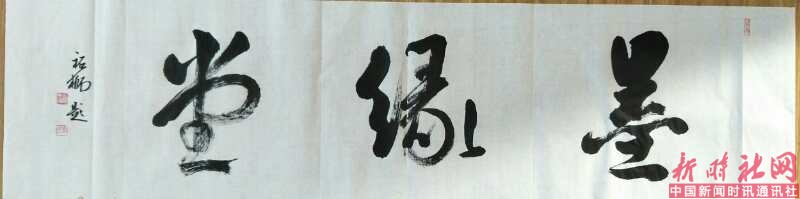 墨缘堂
题
新时社网
中国新闻时讯通讯社